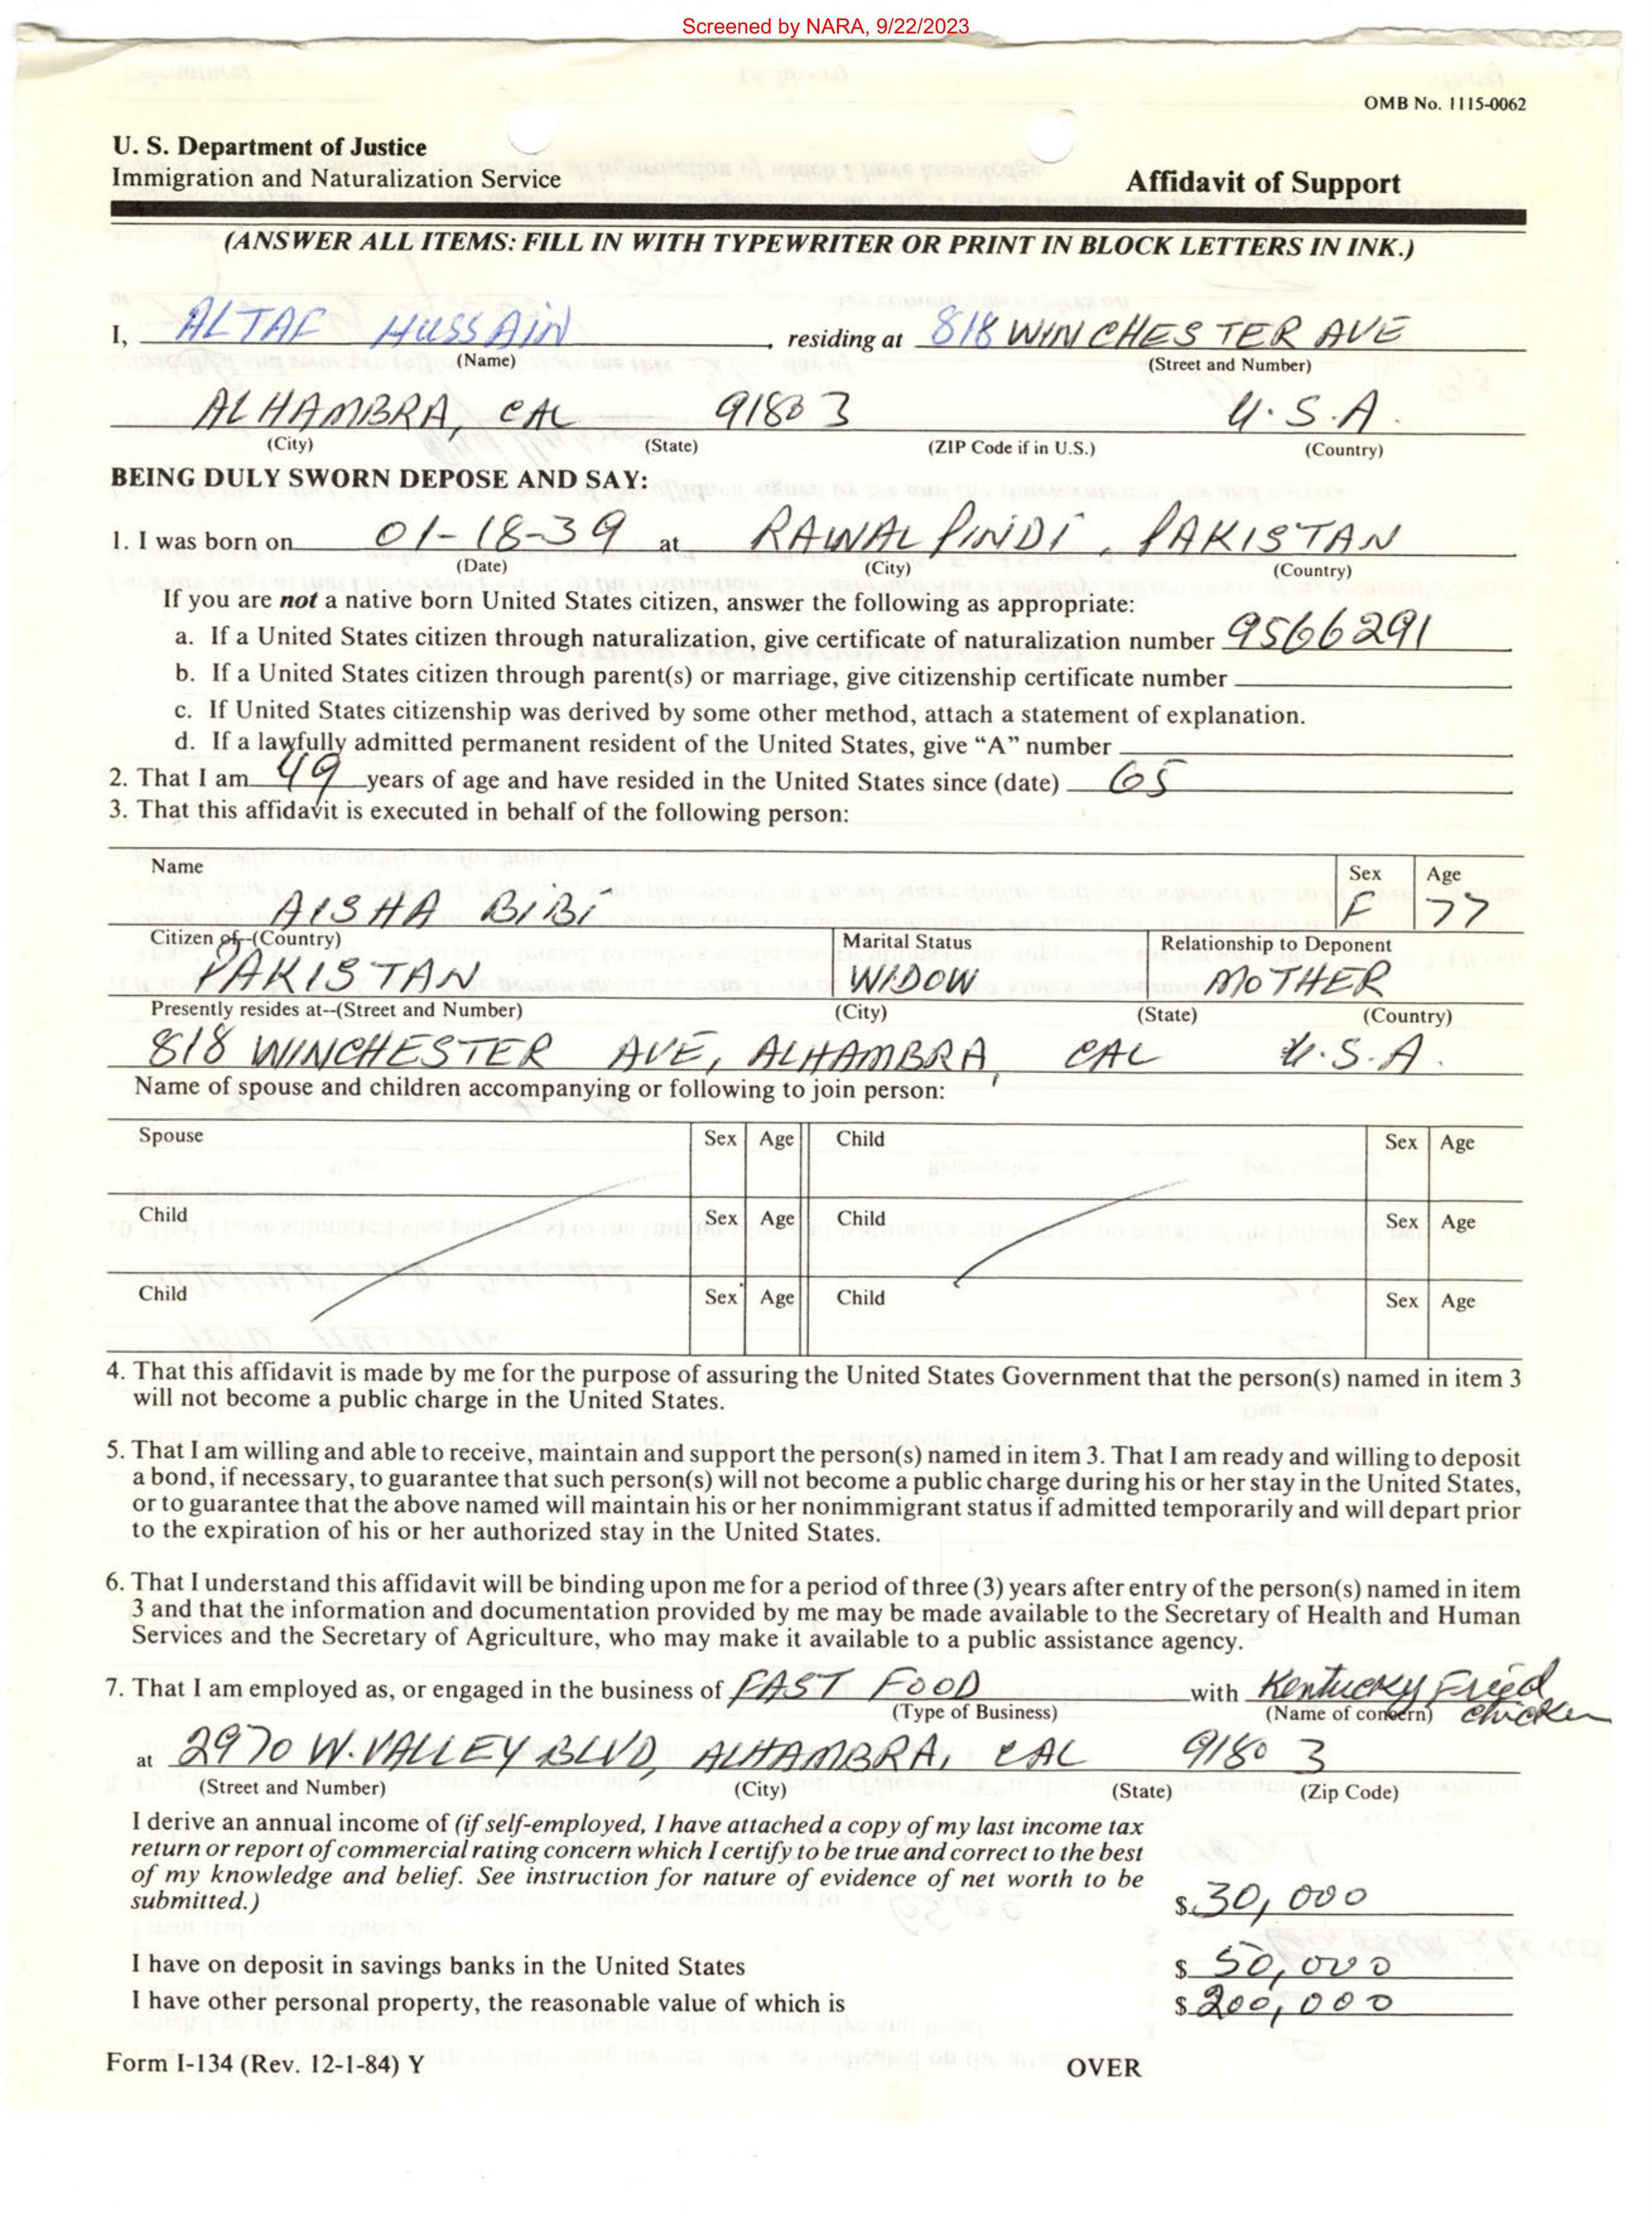 Screened by NARA, 9/22/2023
OMB No. 1115-0062
U. S. Department of Justice
Immigration and Naturalization Service
Affidavit of Support
(ANSWER ALL ITEMS: FILL IN WITH TYPEWRITER OR PRINT IN BLOCK LETTERS IN INK.)
I, ALTAF HUSSAIN, residing at 818 WINCHESTER AVE
(Name) (Street and Number)
ALHAMBRA, CAL 91803 U.S.A.
(City) (State) (ZIP Code if in U.S.) (Country)
BEING DULY SWORN DEPOSE AND SAY:
1. I was born on 01-18-39 at RAWALPINDI, PAKISTAN
(Date) (City) (Country)
If you are not a native born United States citizen, answer the following as appropriate:
a. If a United States citizen through naturalization, give certificate of naturalization number 9566291
b. If a United States citizen through parent(s) or marriage, give citizenship certificate number
c. If United States citizenship was derived by some other method, attach a statement of explanation.
d. If a lawfully admitted permanent resident of the United States, give “A” number
2. That I am 49 years of age and have resided in the United States since (date) 65
3. That this affidavit is executed in behalf of the following person:
Name Sex Age
AISHA BIBI F 77
Citizen of--(Country) Marital Status Relationship to Deponent
PAKISTAN WIDOW MOTHER
Presently resides at--(Street and Number) (City) (State) (Country)
818 WINCHESTER AVE, ALHAMBRA, CAL U.S.A.
Name of spouse and children accompanying or following to join person:
Spouse Sex Age Child Sex Age
Child Sex Age Child Sex Age
Child Sex Age Child Sex Age
4. That this affidavit is made by me for the purpose of assuring the United States Government that the person(s) named in item 3
will not become a public charge in the United States.
5. That I am willing and able to receive, maintain and support the person(s) named in item 3. That I am ready and willing to deposit
a bond, if necessary, to guarantee that such person(s) will not become a public charge during his or her stay in the United States,
or to guarantee that the above named will maintain his or her nonimmigrant status if admitted temporarily and will depart prior
to the expiration of his or her authorized stay in the United States.
6. That I understand this affidavit will be binding upon me for a period of three (3) years after entry of the person(s) named in item
3 and that the information and documentation provided by me may be made available to the Secretary of Health and Human
Services and the Secretary of Agriculture, who may make it available to a public assistance agency.
7. That I am employed as, or engaged in the business of FAST FOOD with Kentucky Fried
(Type of Business) (Name of concern) chicken
at 2970 W. VALLEY BLVD, ALHAMBRA, CAL 91803
(Street and Number) (City) (State) (Zip Code)
I derive an annual income of (if self-employed, I have attached a copy of my last income tax
return or report of commercial rating concern which I certify to be true and correct to the best
of my knowledge and belief. See instruction for nature of evidence of net worth to be
submitted.) $ 30,000
I have on deposit in savings banks in the United States $ 50,000
I have other personal property, the reasonable value of which is $ 200,000
Form I-134 (Rev. 12-1-84) Y OVER